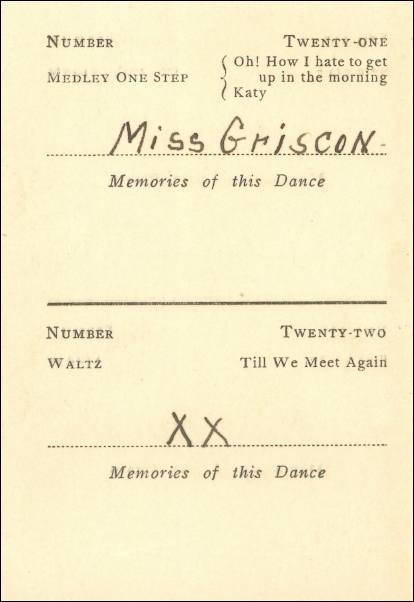 NUMBER TWENTY-ONE
MEDLEY ONE STEP { Oh! How I hate to get
up in the morning
Katy
Miss Griscon
Memories of this Dance
NUMBER TWENTY-TWO
WALTZ Till We Meet Again
XX
Memories of this Dance